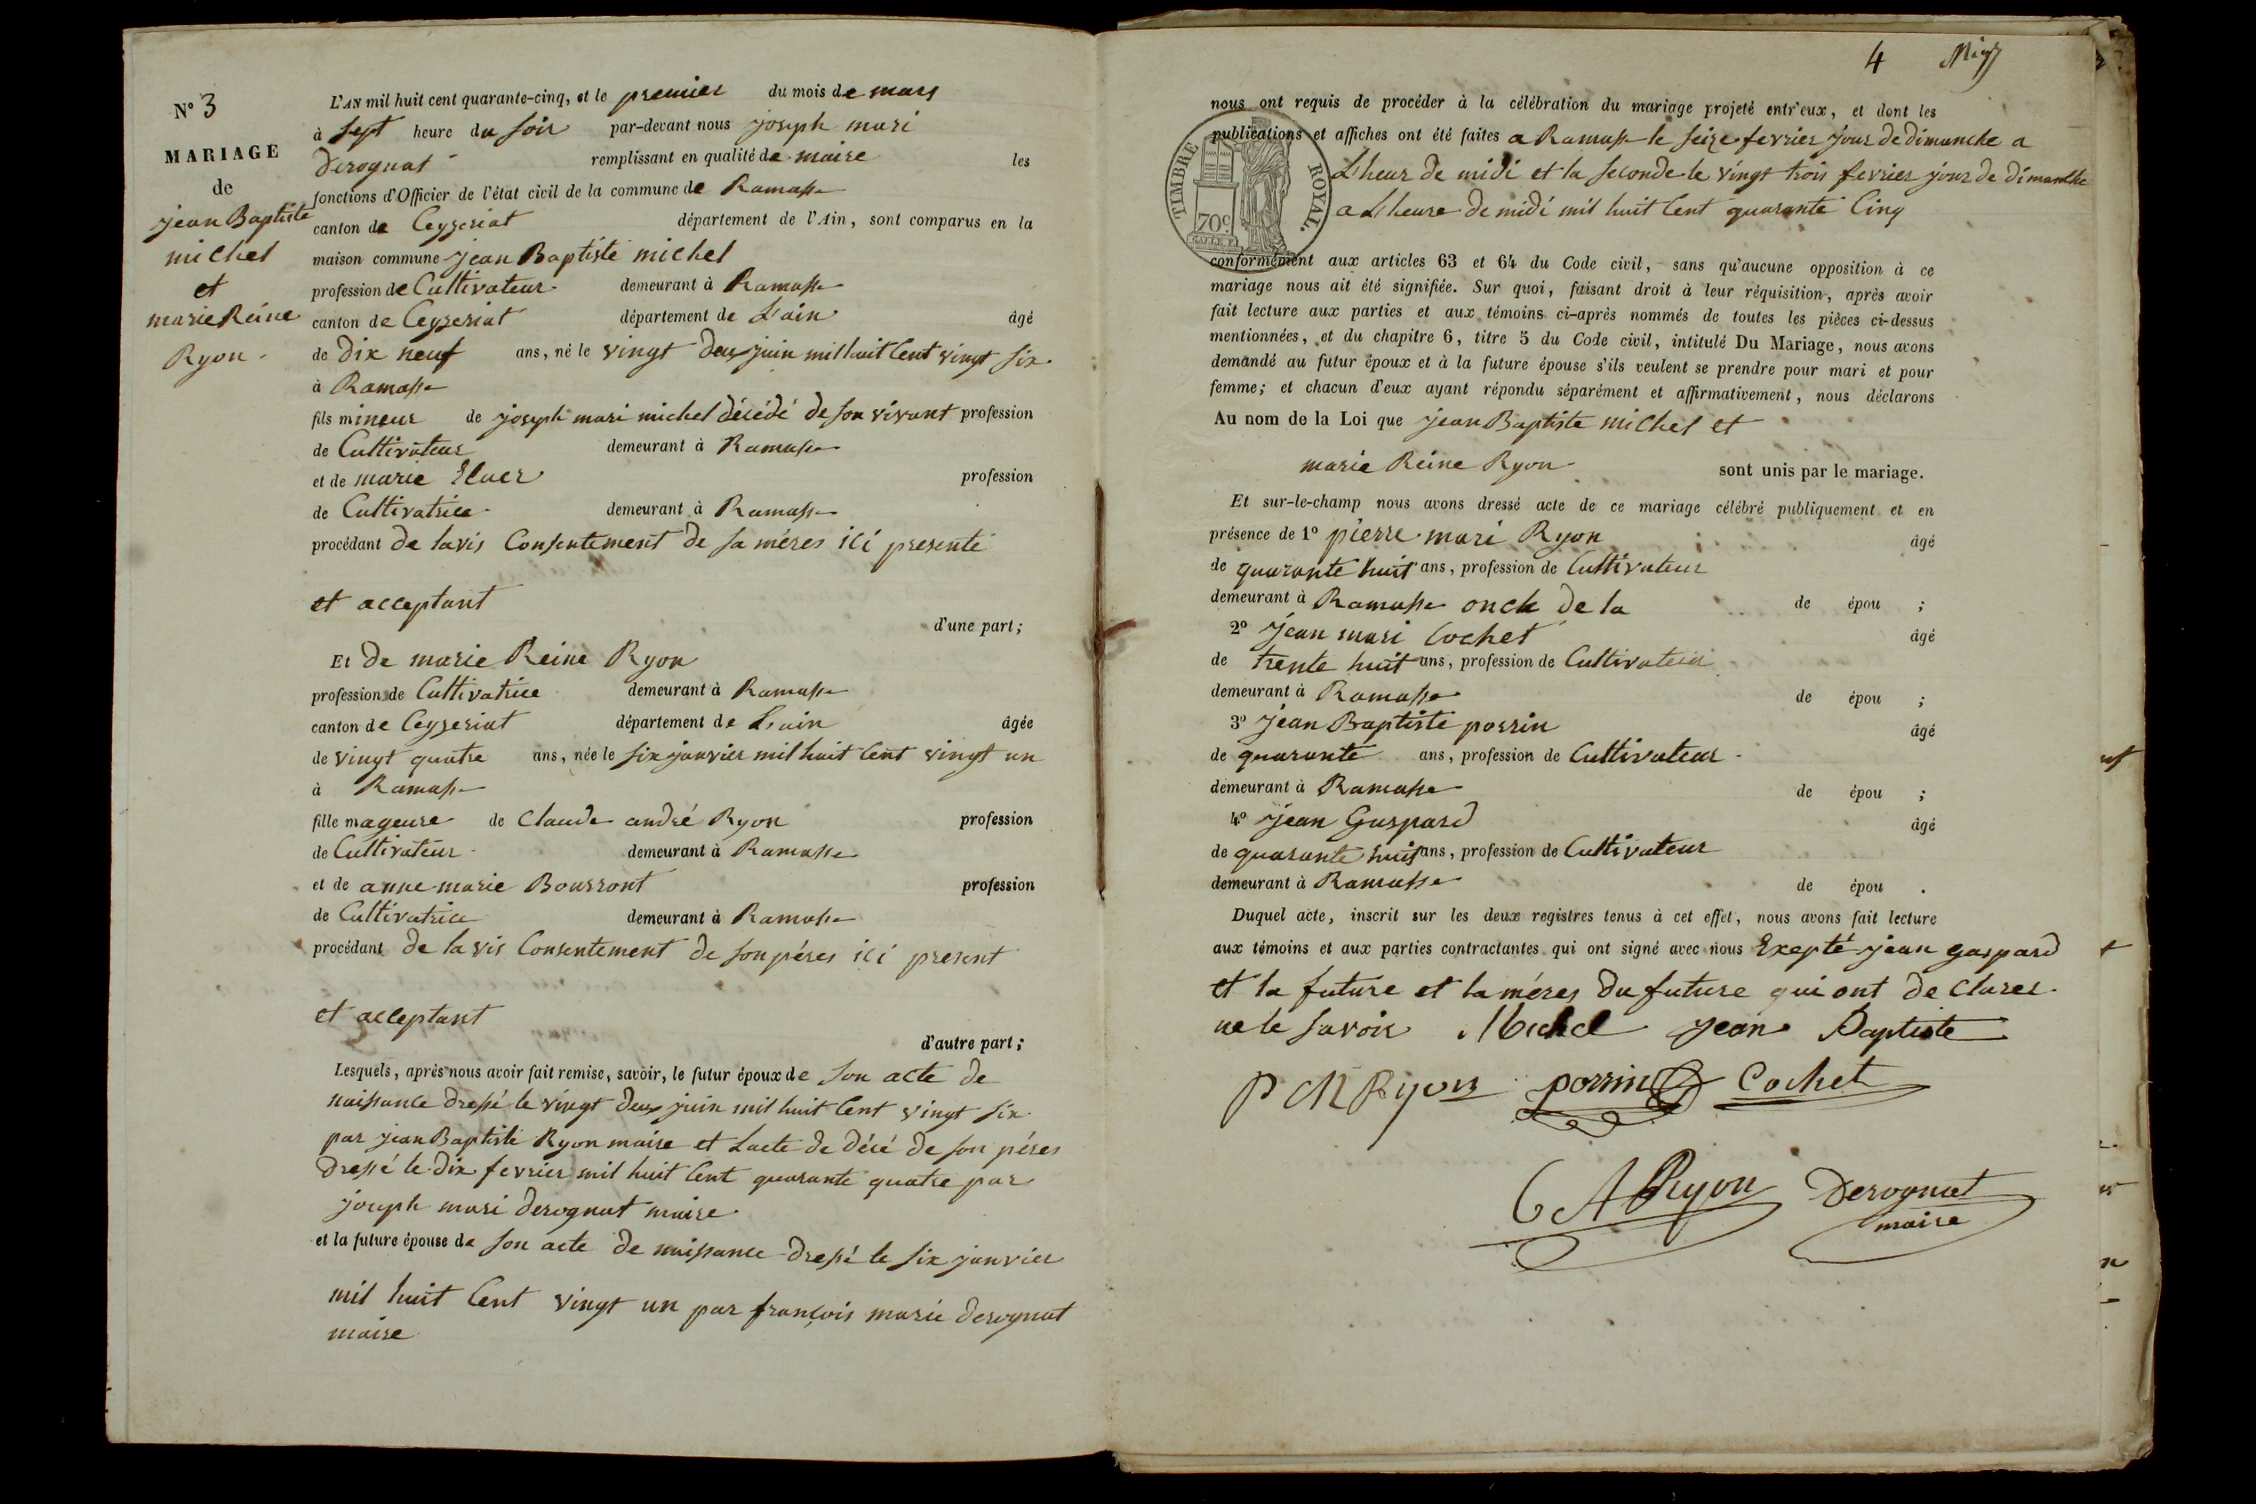 N° 3
MARIAGE
de
jean Baptiste
michel
et
marie Reine
Ryon.
L'AN mil huit cent quarante-cinq, et le premier du mois de mars
à sept heure du soir par-devant nous joseph mari
Derognat remplissant en qualité de maire les
fonctions d'Officier de l'état civil de la commune de Ramasse
canton de Ceyzeriat département de l'Ain, sont comparus en la
maison commune jean Baptiste michel
profession de Cultivateur demeurant à Ramasse
canton de Ceyzeriat département de L'ain âgé
de dix neuf ans, né le vingt deux juin mil huit Cent vingt six
à Ramasse
fils mineur de joseph mari michel décédé de son vivant profession
de Cultivateur demeurant à Ramasse
et de marie profession
de Cultivatrice demeurant à Ramasse
procédant de lavis Consentement de sa méres ici presente
et acceptant
d'une part;
Et de marie Reine Ryon
profession de Cultivatrice demeurant à Ramasse
canton de Ceyzeriat département de L'ain âgée
de vingt quatre ans, née le six janvier mil huit Cent vingt un
à Ramasse
fille mageure de Claude andré Ryon profession
de Cultivateur demeurant à Ramasse
et de anne marie Bourront profession
de Cultivatrice demeurant à Ramasse
procédant de la vis Consentement de son péres ici present
et acceptant
d'autre part;
Lesquels, après nous avoir fait remise, savoir, le futur époux de son acte de
naissance dressé le vingt deux juin mil huit Cent vingt six
par jean Baptiste Ryon maire et Lacte de décé de son péres
dressé le dix fevrier mil huit Cent quarante quatre par
joseph mari derognat maire
et la future épouse de son acte de naissance dressé le six janvier
mil huit Cent vingt un par françois marie derognat
maire
4
nous ont requis de procéder à la célébration du mariage projeté entr'eux, et dont les
publications et affiches ont été faites a Ramasse le seize fevrier jour de dimanche a
L'heur de midi et la seconde le vingt trois fevrier jour de dimanche
a L'heure de midi mil huit Cent quarante Cinq
TIMBRE ROYAL.
70c
conformément aux articles 63 et 64 du Code civil, sans qu'aucune opposition à ce
mariage nous ait été signifiée. Sur quoi, faisant droit à leur réquisition, après avoir
fait lecture aux parties et aux témoins ci-après nommés de toutes les pièces ci-dessus
mentionnées, et du chapitre 6, titre 5 du Code civil, intitulé Du Mariage, nous avons
demandé au futur époux et à la future épouse s'ils veulent se prendre pour mari et pour
femme; et chacun d'eux ayant répondu séparément et affirmativement, nous déclarons
Au nom de la Loi que jean Baptiste michel et
marie Reine Ryon sont unis par le mariage.
Et sur-le-champ nous avons dressé acte de ce mariage célébré publiquement et en
présence de 1° pierre mari Ryon âgé
de quarante huit ans, profession de Cultivateur
demeurant à Ramasse oncle de la de épou ;
2° jean mari Cochet âgé
de trente huit ans, profession de Cultivateur
demeurant à Ramasse de épou ;
3° jean Baptiste porrin âgé
de quarante ans, profession de Cultivateur
demeurant à Ramasse de épou ;
4° jean Gaspard âgé
de quarante huit ans, profession de Cultivateur
demeurant à Ramasse de épou .
Duquel acte, inscrit sur les deux registres tenus à cet effet, nous avons fait lecture
aux témoins et aux parties contractantes qui ont signé avec nous Exepté jean gaspard
et la future et la méres du future qui ont de clarer
ne le savoir Michel jean Baptiste
P M Ryon porrin Cochet
C A Ryon Derognat
maire